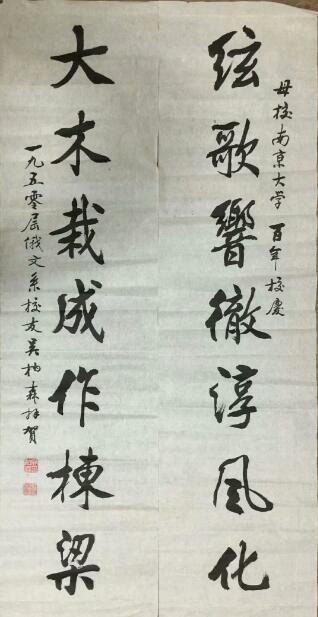 母校南京大学百年校慶
弦歌響徹淳風化
大木栽成作棟梁
一九五零届俄文系校友吴柏森拜贺